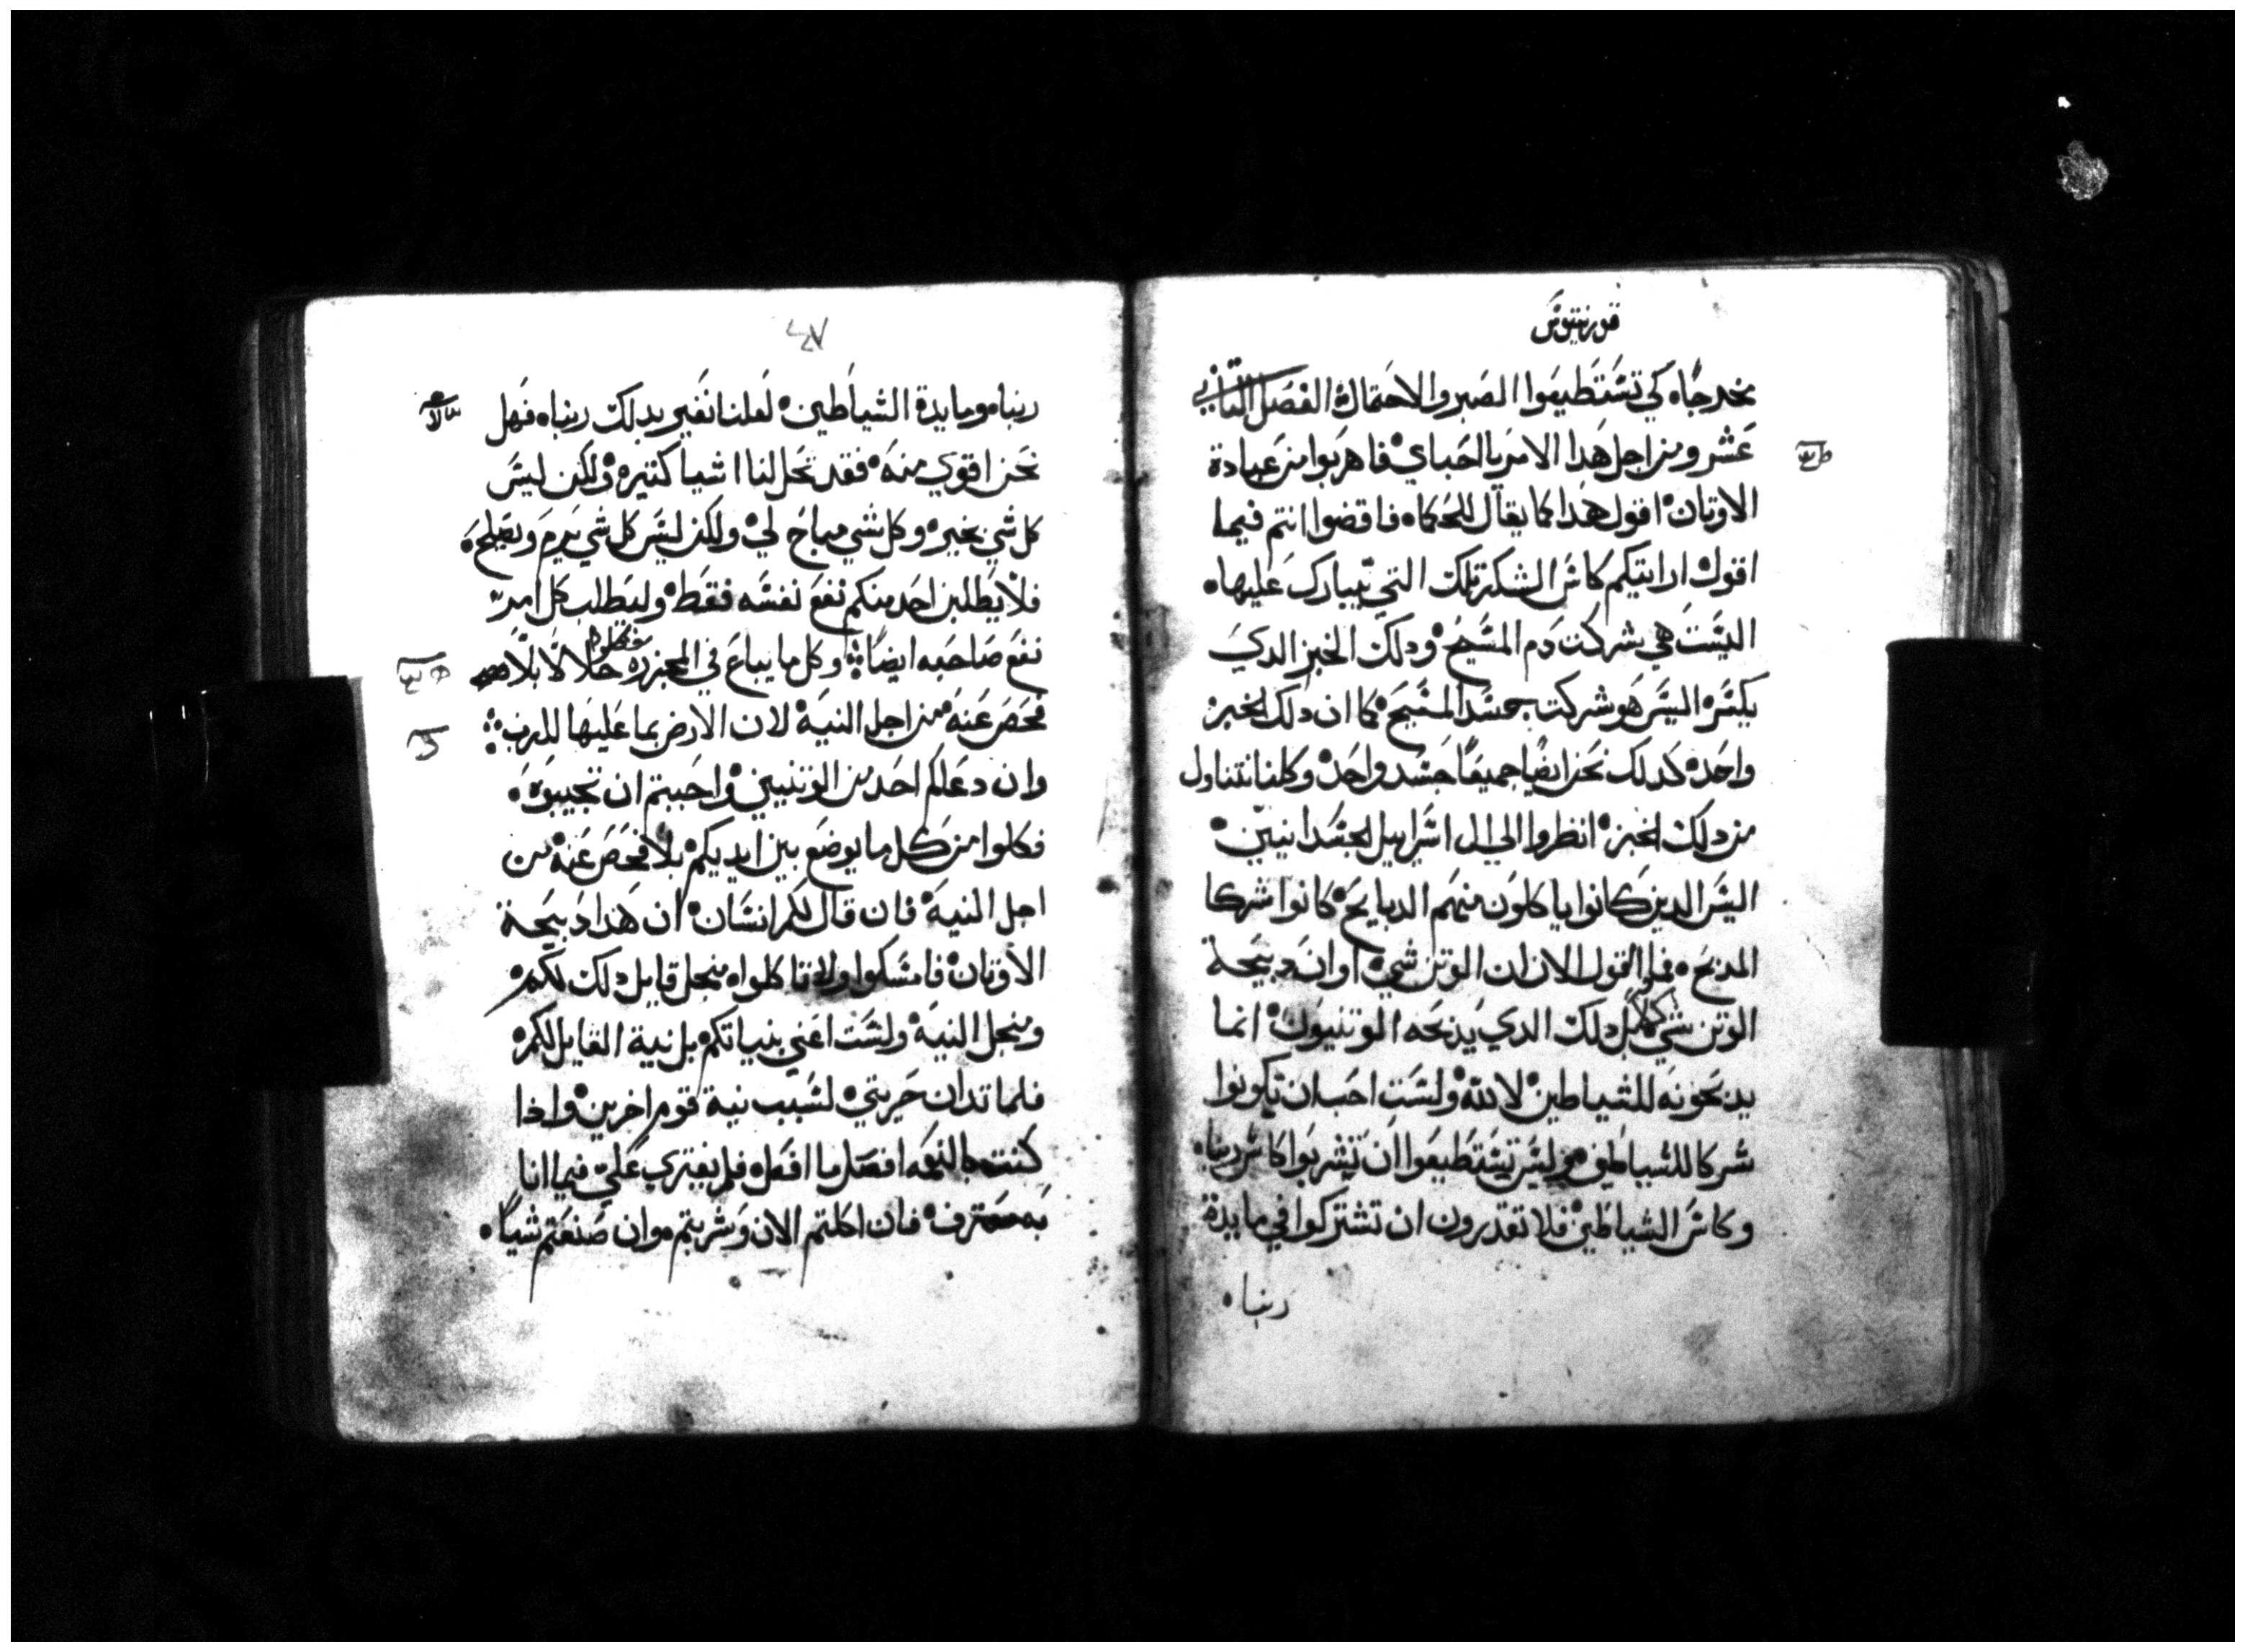 قورنتيوس
مخرجاه كي تستطيعوا الصبر والاحتمال الفصل الثاني
عشر ومن اجل هذا الامر يا احباي فاهربوا من عبادة
الاوتان اقول هذا كما يقال للحكماه فاقضوا انتم فيما
اقول ارايتكم كاس الشكر تلك التي يبارك عليهاه
اليست هي شركت دم المسيح ودلك الخبز الدي
يكسر اليس هو شركت جسد المسيح كما ان دلك الخبز
واحده كدلك نحن ايضا جميعًا جسد واحد وكلنا نتناول
من دلك الخبز انظروا الي ال اسراييل الجسدانيين
اليس الدين كانوا ياكلون منهم الدبايح كانوا شركا
المدبح فلو اقول الان ان الوتن شي او ان دبيحة
الوتن شي كلا بل دلك الدي يدبحه الوتنيون انما
يدبحونه للشياطين لا لله ولست احب ان تكونوا
شركا للشياطين ليس تستطيعوا ان تشربوا كاس ربناه
وكاس الشياطين فلا تقدرون ان تشتركوا في مايدة
ربناه
٤٧
ربناه ومايدة الشياطين لعلنا نغير بدلك ربناه فهل
نحن اقوي منه فقد تحل لنا اشيا كتيره ولكن ليس
كل شي بخير وكل شي مباح لي ولكن ليس كل شي يرم ويصلحه
فلا يطلبن احد منكم نفع نفسه فقط وليطلب كل امر
نفع صاحبه ايضا وكل ما يباع في المجزره فكلوه حلالا بلا
فحص عنه من اجل النية لان الارض بما عليها للرب
وان دعاكم احد من الوتنيين واحببتم ان تجيبوه
فكلوا من كل ما يوضع بين ايديكم بلا فحص عنه من
اجل النية فان قال لكم انسان ان هدا دبيحة
الاوتان فامسكوا ولا تاكلواه منجل قايل دلك لكم
ومنجل النية ولست اعني بنياتكم بل نية القايل لكم
فلما تدان حريتي لسبب نية قوم اخرين واذا
كنت بالنعمه افعل ما افعل فلم يفتري علي فيما انا
به معترف فان اكلتم الان وشربتم وان صنعتم شياه